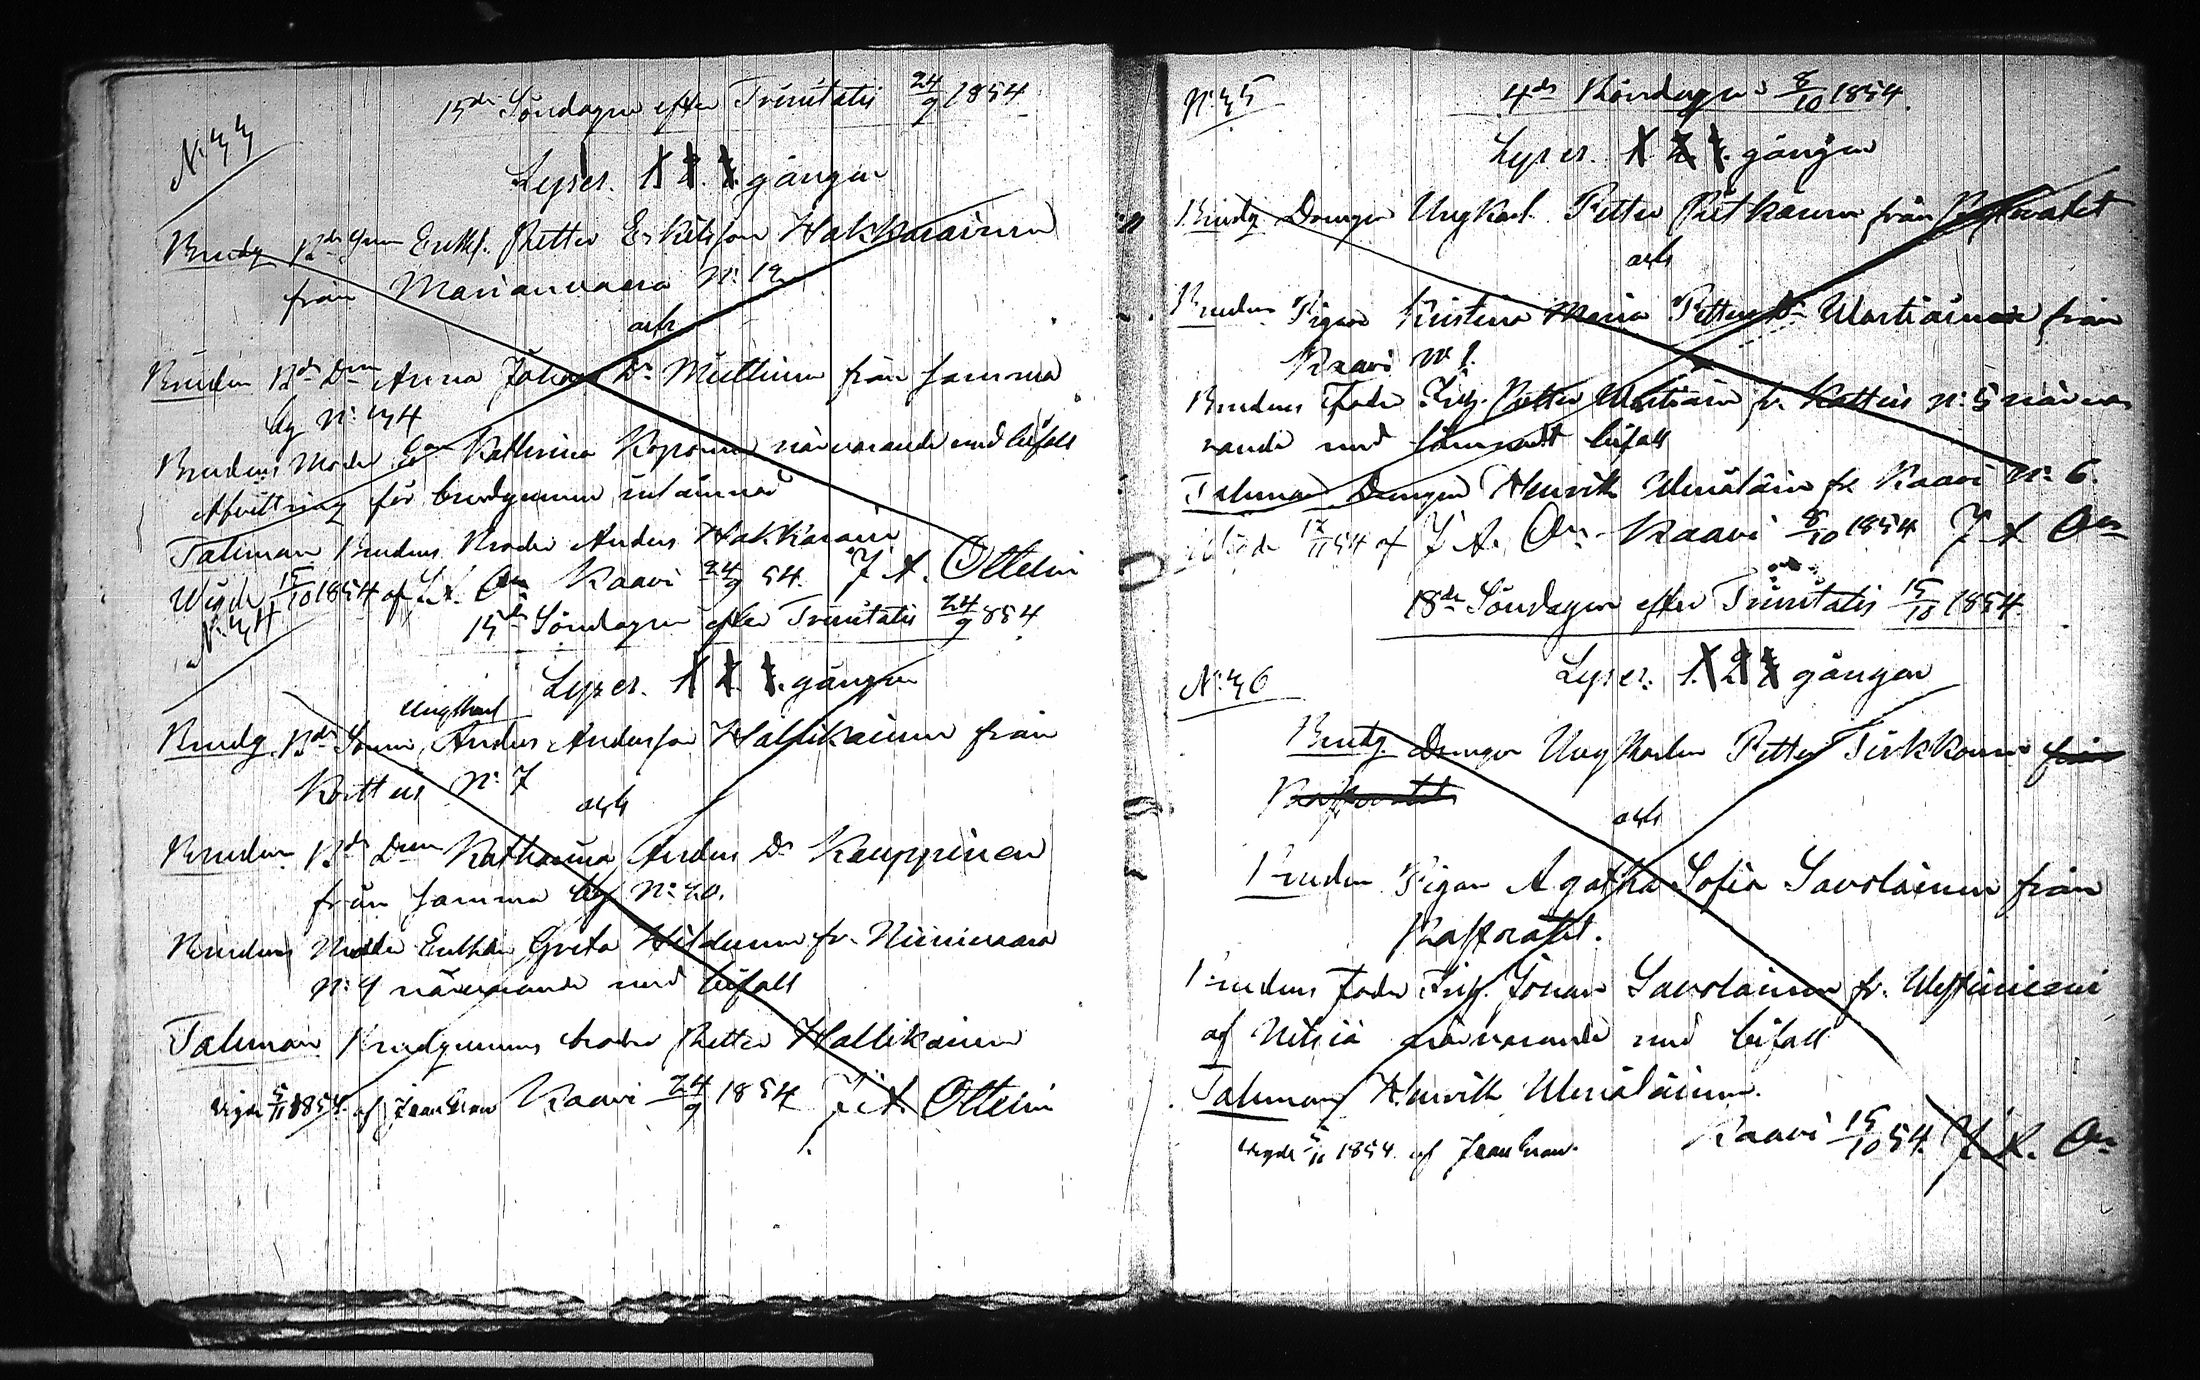 N: 33
15de Söndagen efter Trinitatis 24/9 1854
Lyses 1. 2. 3. gången
Brudg. Bde Son Enkl. Petter Eskilsson Hakkarainen
från Marianvaara N: 12
och
Bruden Bde Dn Anna Johans Dr Miettinen från samma
by N: 34
Brudens Moder Katherina Koponen närvarande med bifall
Afvittring för brudgummen inlämnad
Talman Brudens Broder Anders Hakkarain
Wigde 15/10 1854 af J. A. On Kaavi 24/9 54. J. A. Ottelin
N: 34
15de Söndagen efter Trinitatis 24/9 854
Lyses. 1. 2. 3. gången
Brudg. Bde Sonen Ungkarl Anders Andersson Hallikainen från
Kortteis N: 7
och
Bruden Bde Dren Katharina Anders Dr Kauppinen
från samma by N: 20.
Brudens Moder Enkan Greta fr. Niinivaara
N: 9 närvarande med bifall
Talman Brudgummens broder Petter Hallikainen
Vigde 5/11 1854. af Kaavi 24/9 1854 J. A. Ottelin
N: 35
4de Böndagen 8/10 1854.
Lyses. 1. 2. 3. gången
Brudg. Drengen Ungkarl. Petter Pitkänen från
och
Bruden Pigan Kristina Maria Petters Dr Wartiainen från
Kaavi N: 1.
Brudens Fader Inh. Petter Wartiain fr. Kortteis N: 5 närva-
rande med lämnadt bifall
Talman Drengen Henrik fr. Kaavi N: 6.
Wigde 12/11 54 af J. A. On Kaavi 8/10 1854 J. A. On
18de Söndagen efter Trinitatis 15/10 1854.
N: 36
Lyses. 1. 2. 3. gången
Brudg. Drengen Ungkarlen Petter Tirkkonen från
och
Bruden Pigan Agatha Sofia Savolainen från
Pastoratet.
Brudens Fader Inh. Johan Savolainen fr.
af Nilsiä närvarande med bifall
Talman Henrik
Kaavi 15/10 54. J. A. On
Vigde 5/11 1854. af